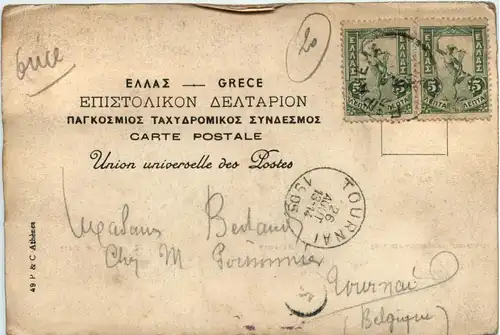 Grèce
20
ΕΛΛΑΣ
ΕΛΛΑΣ
5 5
ΛΕΠΤΑ
5 5
ΛΕΠΤΑ
ΕΛΛΑΣ — GRECE
ΕΠΙΣΤΟΛΙΚΟΝ ΔΕΛΤΑΡΙΟΝ
ΠΑΓΚΟΣΜΙΟΣ ΤΑΧΥΔΡΟΜΙΚΟΣ ΣΥΝΔΕΣΜΟΣ
CARTE POSTALE
Union universelle des Postes
TOURNAI
26
AOUT
13-14
1905
Madame
Chez M
Tournai
(Belgique)
49 P & C Athènes